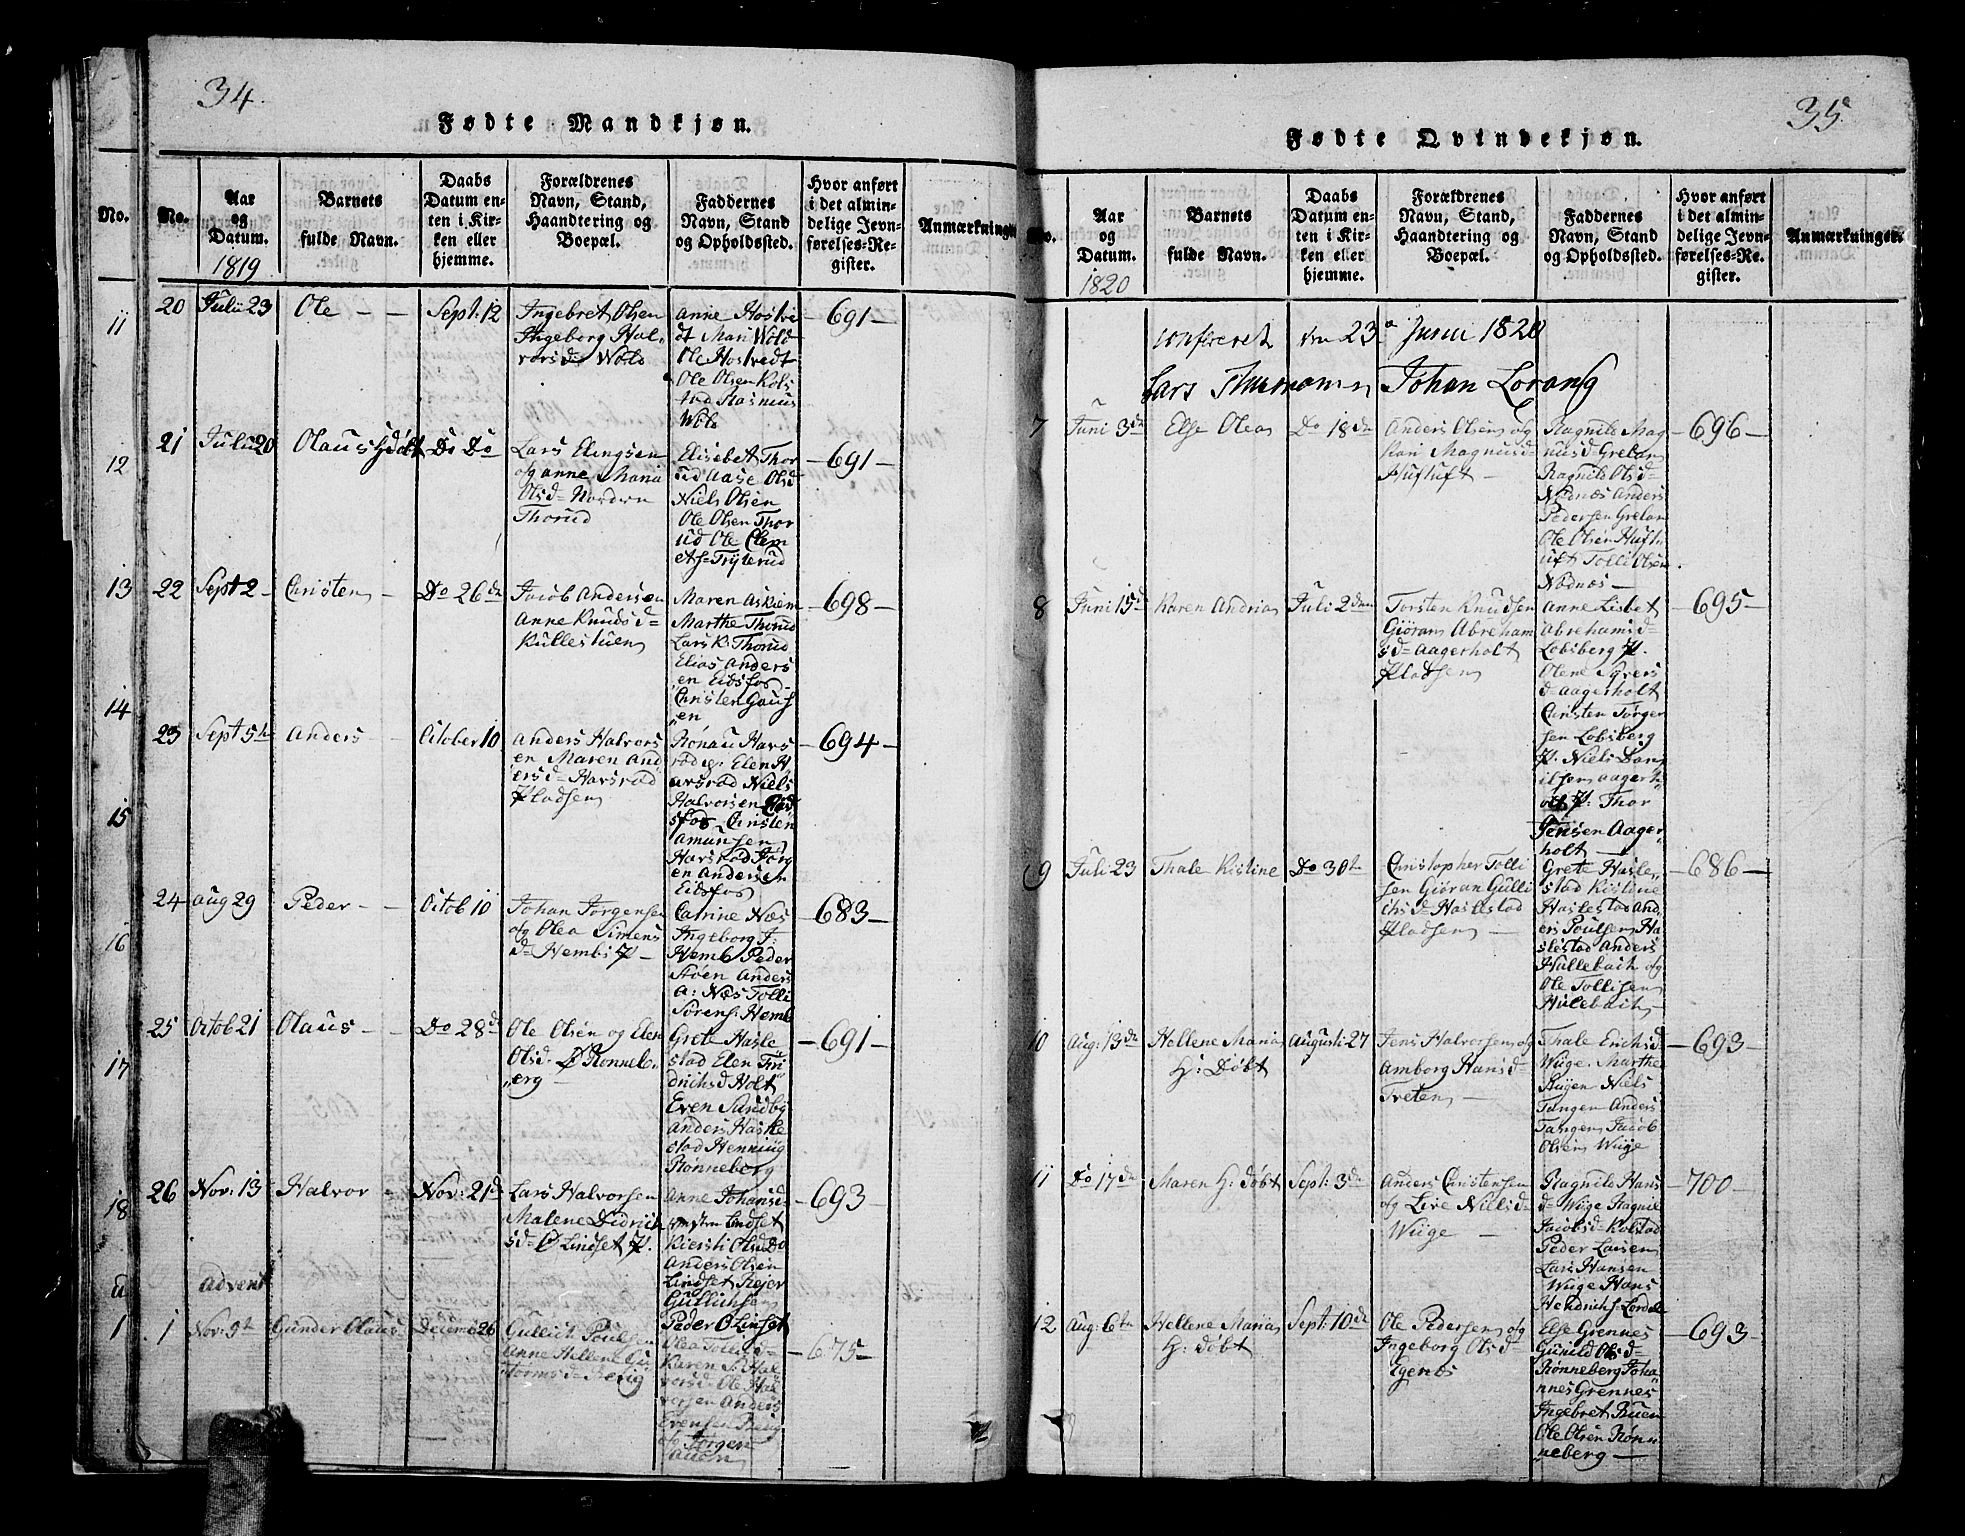 34.
Fødte Mandkjøn.
No.
No.
Aar
og
Datum.
1819
Barnets
fulde Navn.
Daabs
Datum en-
ten i Kir-
ken eller
hjemme.
Forældrenes
Navn, Stand,
Haandtering og
Boepæl.
Faddernes
Navn, Stand
og Opholdssted.
Hvor anført
i det almin-
delige Jevn-
førelses-Re-
gister.
Anmærkninger
11
12
13
14
15
16
17
18
1
20
Julii 23
Ole
Sept: 12
Ingebret Olsen
Ingeborg Hal-
vorsd= Wold
Anne Hostve
dt Mari Wold
Ole Hostvedt
Ole Olsen Kols
tad Rasmus
Wold
-691-
21
Julii 20
Olaus Hdøbt
Do Do
Lars Elingsen
og Anne Maria
Olsd= Nordre
Thorud
Elisebet Thor
ud Aase Olsd
Niels Olsen
Ole Olsen Thor
ud Ole Clem
ets= Tryterud
-691-
22
Sept 2
Christen
Do 26de
Jacob Andersen
Anne Knudsd=
Kullestuen
Maren Askiem
Marthe Thorud
Lars K. Thorud
Elias Anders
en Eidsfos
Christen Gaus
en
-698-
23
Sept 5te
Anders
October 10
Anders Halvors
en Maren And
ersd= Havsrud
Pladsen
Rønau Havs
rud Elen H
avsrud Niels
Halvorsen Eids
fos Christen
Amunsen
Havsrud Jørg
en Andersen
Eidsfos
-694-
24
Aug 29
Peder
Octob 10
Johan Jørgensen
og Olea Simens
d= Hembs P
Catrine Næs
Ingeborg J:
Hemb Peder
Støen Anders
A: Næs Tolli
Sørens: Hemb
-683-
25
Octob 21
Olaus
Do 28de
Ole Olsen og Elen
Olsd. Ø Rønneb
erg
Grete Hasle
stad Elen Fri
drichsd Holt
Even Sundby
Anders Hasle
stad Henning
Rønneberg
-691-
26
Nov: 13
Halvor
Nov: 21de
Lars Halvorsen
Malene Didrich
sd= Ø Lindset P.
Anne Johansd=
Lindset
Kiersti Olsd Do
Anders Olsen
Lindset Reier
Gullichsen
Peder Ø Linset
-693-
Advent
1
Nov: 9te
Gunder Olaus
Decemb 26
Gullich Poulsen
Anne Hellene Gu
tormsd= Revig
Olea Tollisd=
Karen S. Hal
vorsd= Ole Hal
vorsen Anders
Evensen Revig
og Jørgen
-675-
35.
Fødte Qvindekjøn.
No.
Aar
og
Datum.
1820
Barnets
fulde Navn.
Daabs
Datum en-
ten i Kir-
ken eller
hjemme.
Forældrenes
Navn, Stand,
Haandtering og
Boepæl.
Faddernes
Navn, Stand
og Opholdssted.
Hvor anført
i det almin-
delige Jevn-
førelses-Re-
gister.
Anmærkninger.
confereret den 23de Junii 1820
Lars Thurmann Johan Lorang
7
Juni 3de
Else Olea
Do 18de
Anders Olsen og
Kari Magnusd=
Huftuft
Ragnild Mag
nusd= Grelan
Ragnild Olsd=
Nødnæs Anders
Pedersen Grelan
Ole Olsen Huft
uft Tolli Olsen
Nødnæs
-696-
8
Juni 15de
Karen Andria
Juli 2den
Torsten Knudsen
Giøran Abreham
sd= Aagerholt
Pladsen
Anne Lisbet
Abrehamsd=
Lobsberg P.
Olene Syvers
d= Aagerholt
Christen Torger
sen Lobsberg
P. Niels Dan
ilsen Aagerh
olt P: Thor
Jensen Aager
holt
-695-
9
Juli 23
Thale Kistine
Do 30te
Christopher Tolli
sen Giøran Gulli
chsd= Haslestad
Pladsen
Grete Hasle
stad Kistine
Haslestad And
ers Poulsen Ha
slestad Anders
Hullebach og
Ole Tollisen
Hulebach
-686-
10
Aug: 13de
Hellene Maria
H: Døbt
Augusti 27
Jens Halvorsen og
Amborg Hansd=
Treten
Thale Erichsd
Wiige. Marthe
Bugen Niels
Tangen Anders
Tangen Jacob
Olsen Wiige
-693-
11
Do 17de
Maren H: døbt
Sept: 3de
Anders Christensen
og Live Nielsd=
Wiige
Ragnild Hans
d= Wiige Ragnil
Jacobsd= Kolstad
Peder Larsen
Lars Hansen
Wiige Hans
Hendrichs: Lordal
-700-
12
Aug: 6te
Hellene Maria
H: døbt
Sept: 10de
Ole Pedersen og
Ingeborg Olsd=
Egenes
Else Grennes
Gunild Olsd=
Rønneberg Joha
nnes Grennes
Ingebret Buen
Ole Olsen Rønn
eberg
-693-